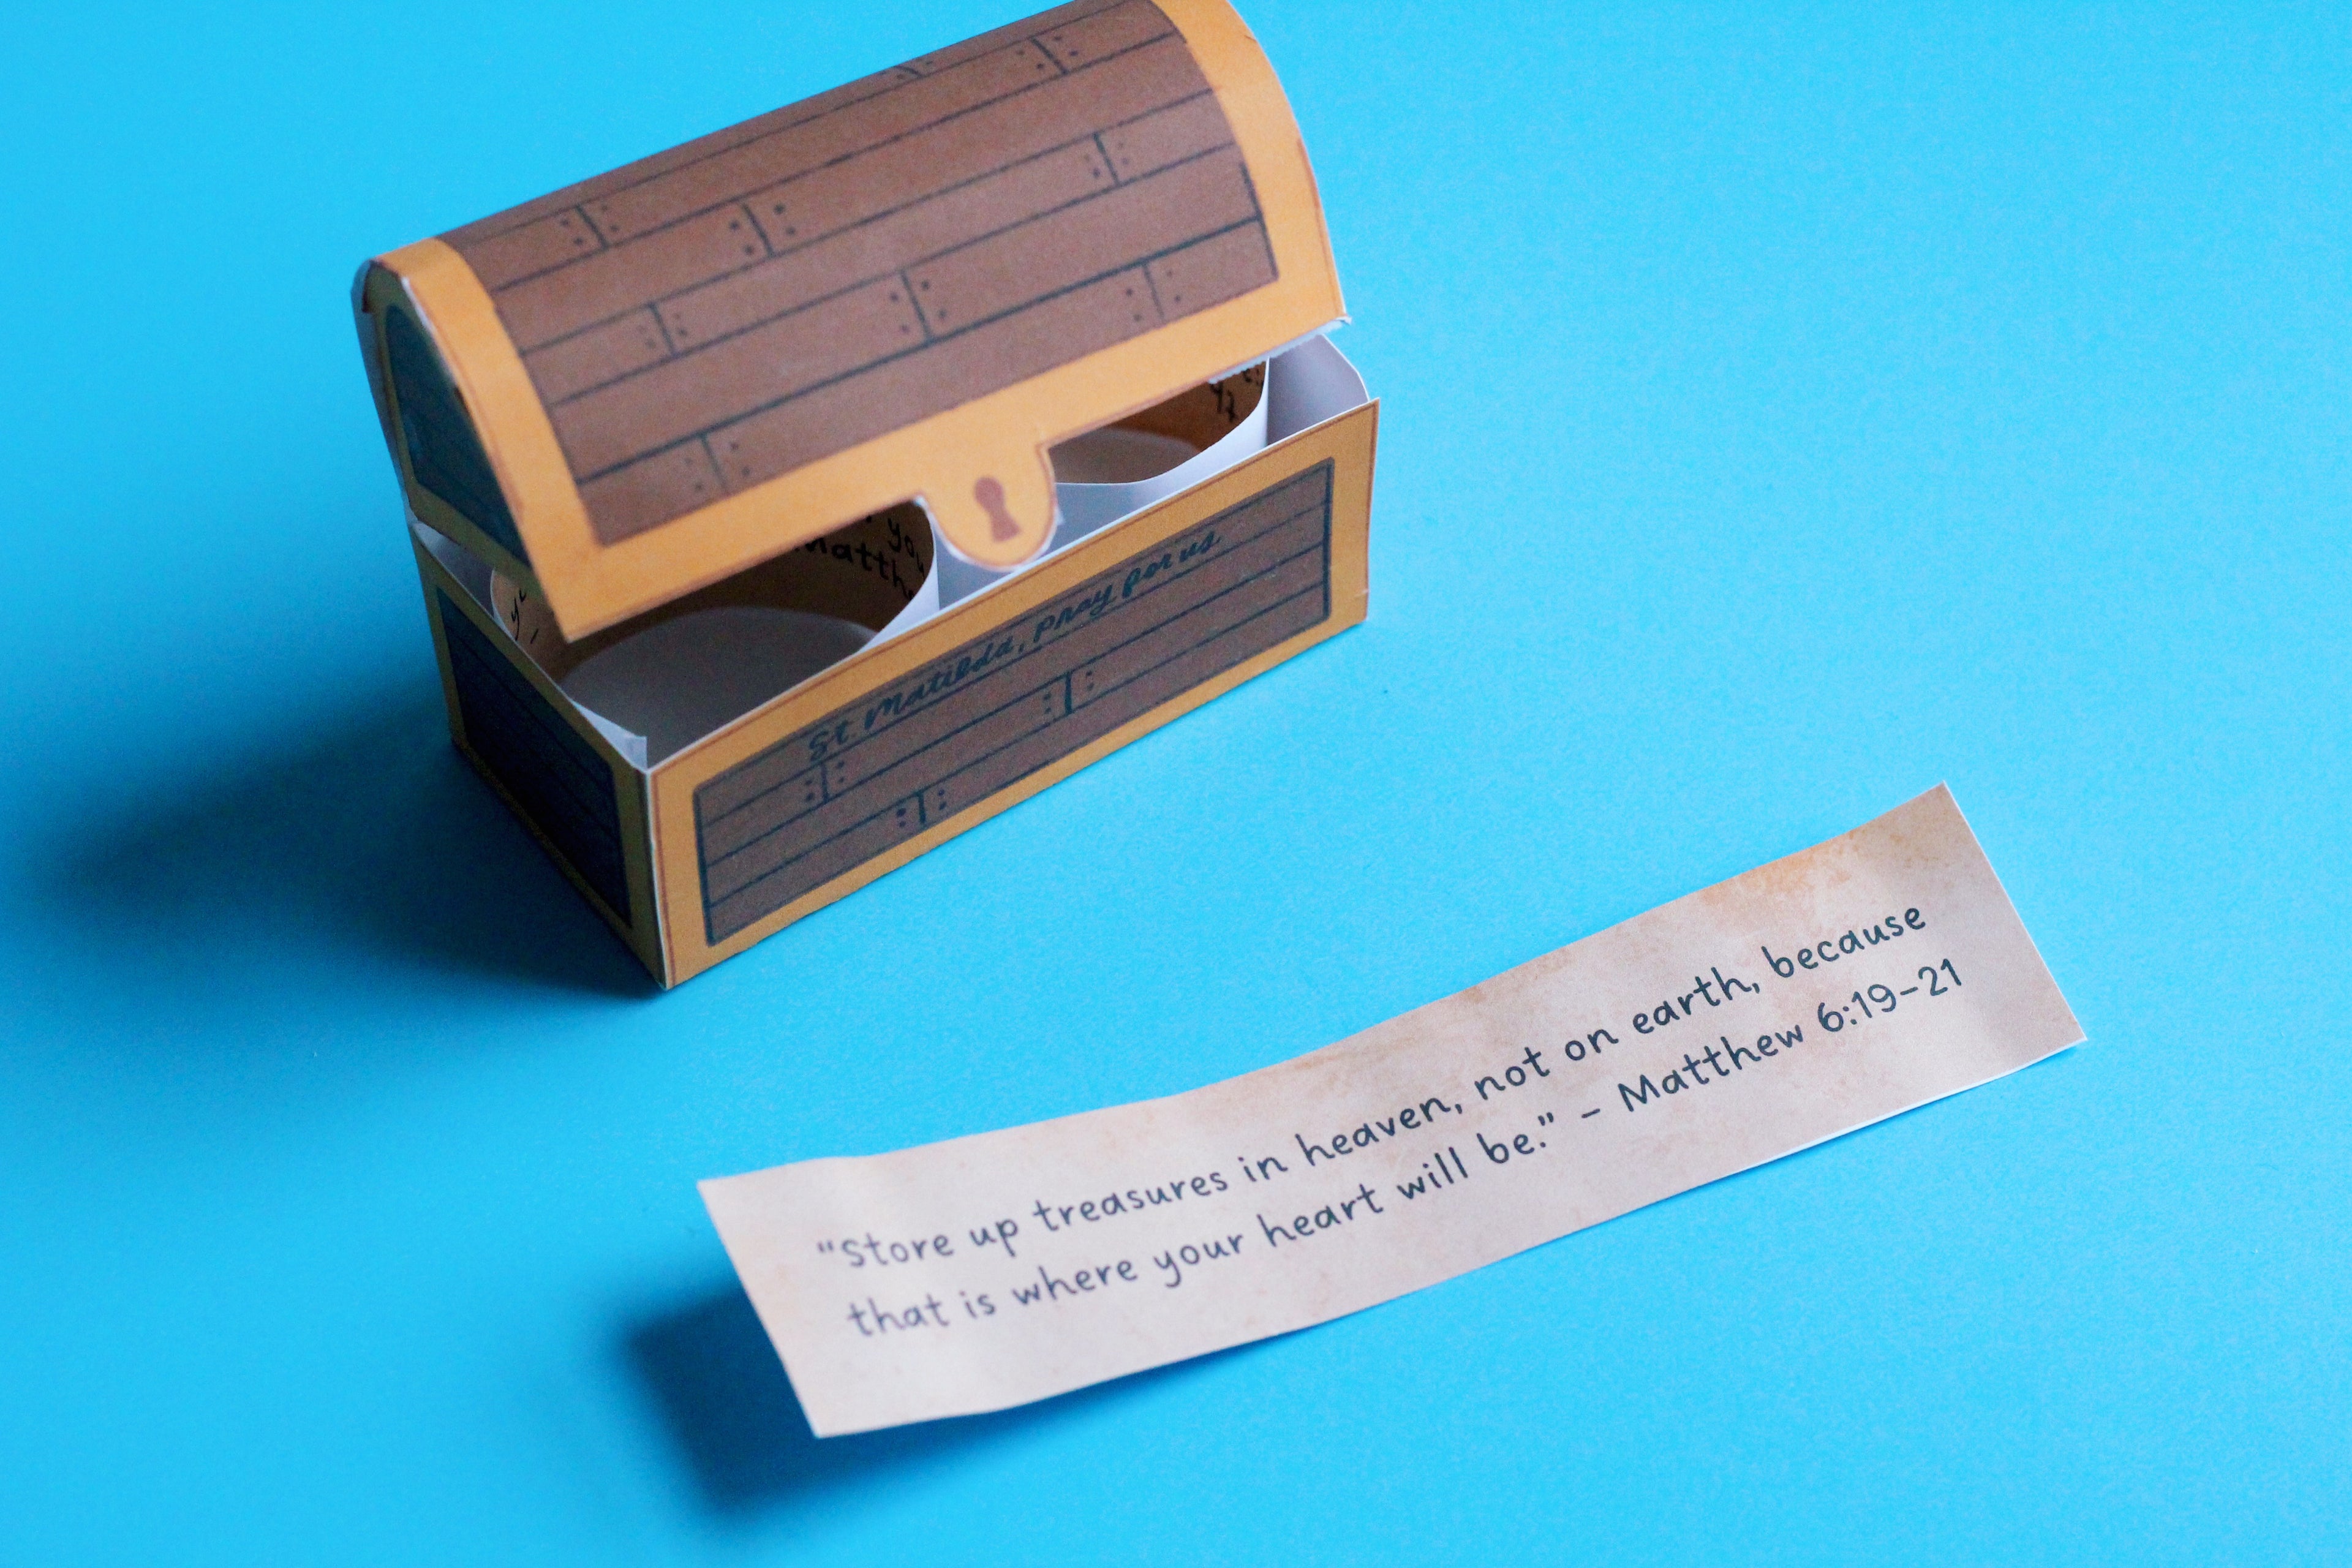 you
Matth
St. Matilda, pray for us.
"Store up treasures in heaven, not on earth, because
that is where your heart will be." - Matthew 6:19-21